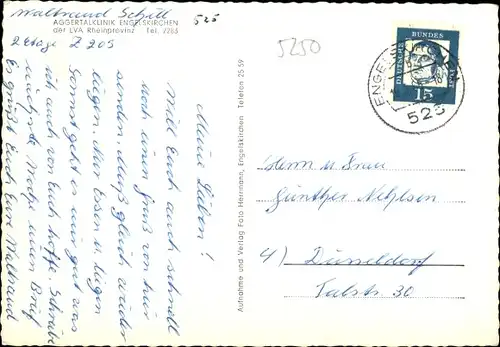 Waltraud Schill
AGGERTALKLINIK ENGELSKIRCHEN
der LVA Rheinprovinz Tel. 2283
2 Etage Z 205
525
5250
Meine Lieben!
Will Euch auch schnell
noch einen Gruß von hier
senden. Muß gleich wieder
liegen. Nur Essen u. Liegen
Sonst geht es mir gut was
ich auch von Euch hoffe. Schreibe
nächste Woche einen Brief
Es grüßt Euch Eure Waltraud
Aufnahme und Verlag Foto Herrmann, Engelskirchen Telefon 25 59
DEUTSCHE BUNDESPOST
15
ENGELSKIRCHEN
525
Herrn u. Frau
Günther Nehlsen
4) Düsseldorf
Talstr. 30